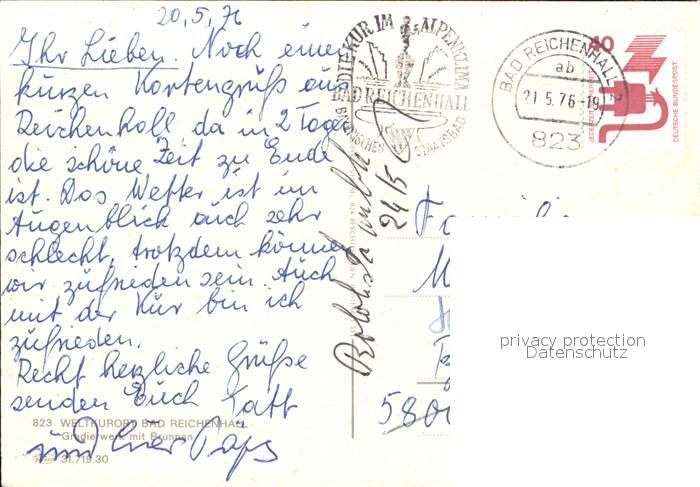 20.5.76
Ihr Lieben. Noch einen
kurzen Kartengruß aus
Reichenhall da in 2 Tagen
die schöne Zeit zu Ende
ist. Das Wetter ist im
Augenblick auch sehr
schlecht, trotzdem können
wir zufrieden sein. Auch
mit der Kur bin ich
zufrieden.
Recht herzliche Grüße
senden Euch
und Euer Paps
823 WELTKURORT BAD REICHENHALL
Gradierwerk mit Brunnen
31.719.30
DIE KUR IM ALPENKLIMA
BAD REICHENHALL
BAYERISCHES STAATSBAD
BAD REICHENHALL 2
ab
21.5.76-19
823
40
JEDERZEIT
DEUTSCHE BUNDESPOST
24/5
Fa
M
580
privacy protection
Datenschutz